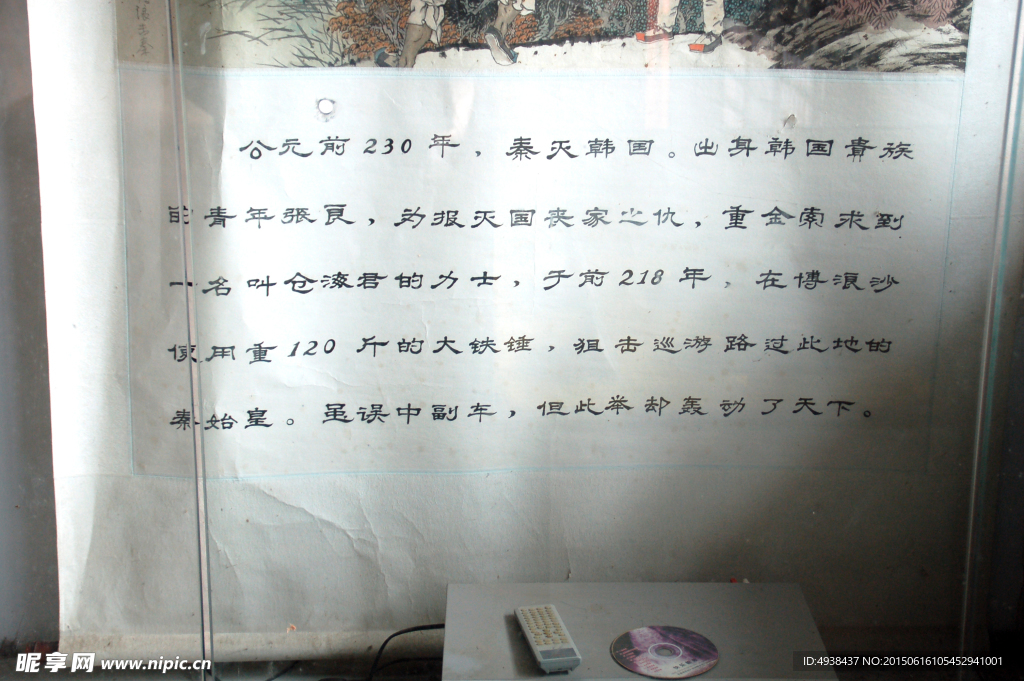 公元前230年，秦灭韩国。出身韩国贵族
的青年张良，为报灭国丧家之仇，重金索求到
一名叫仓海君的力士，于前218年，在博浪沙
使用重120斤的大铁锤，狙击巡游路过此地的
秦始皇。虽误中副车，但此举却轰动了天下。
昵享网 www.nipic.cn
ID:4938437 NO:20150616105452941001